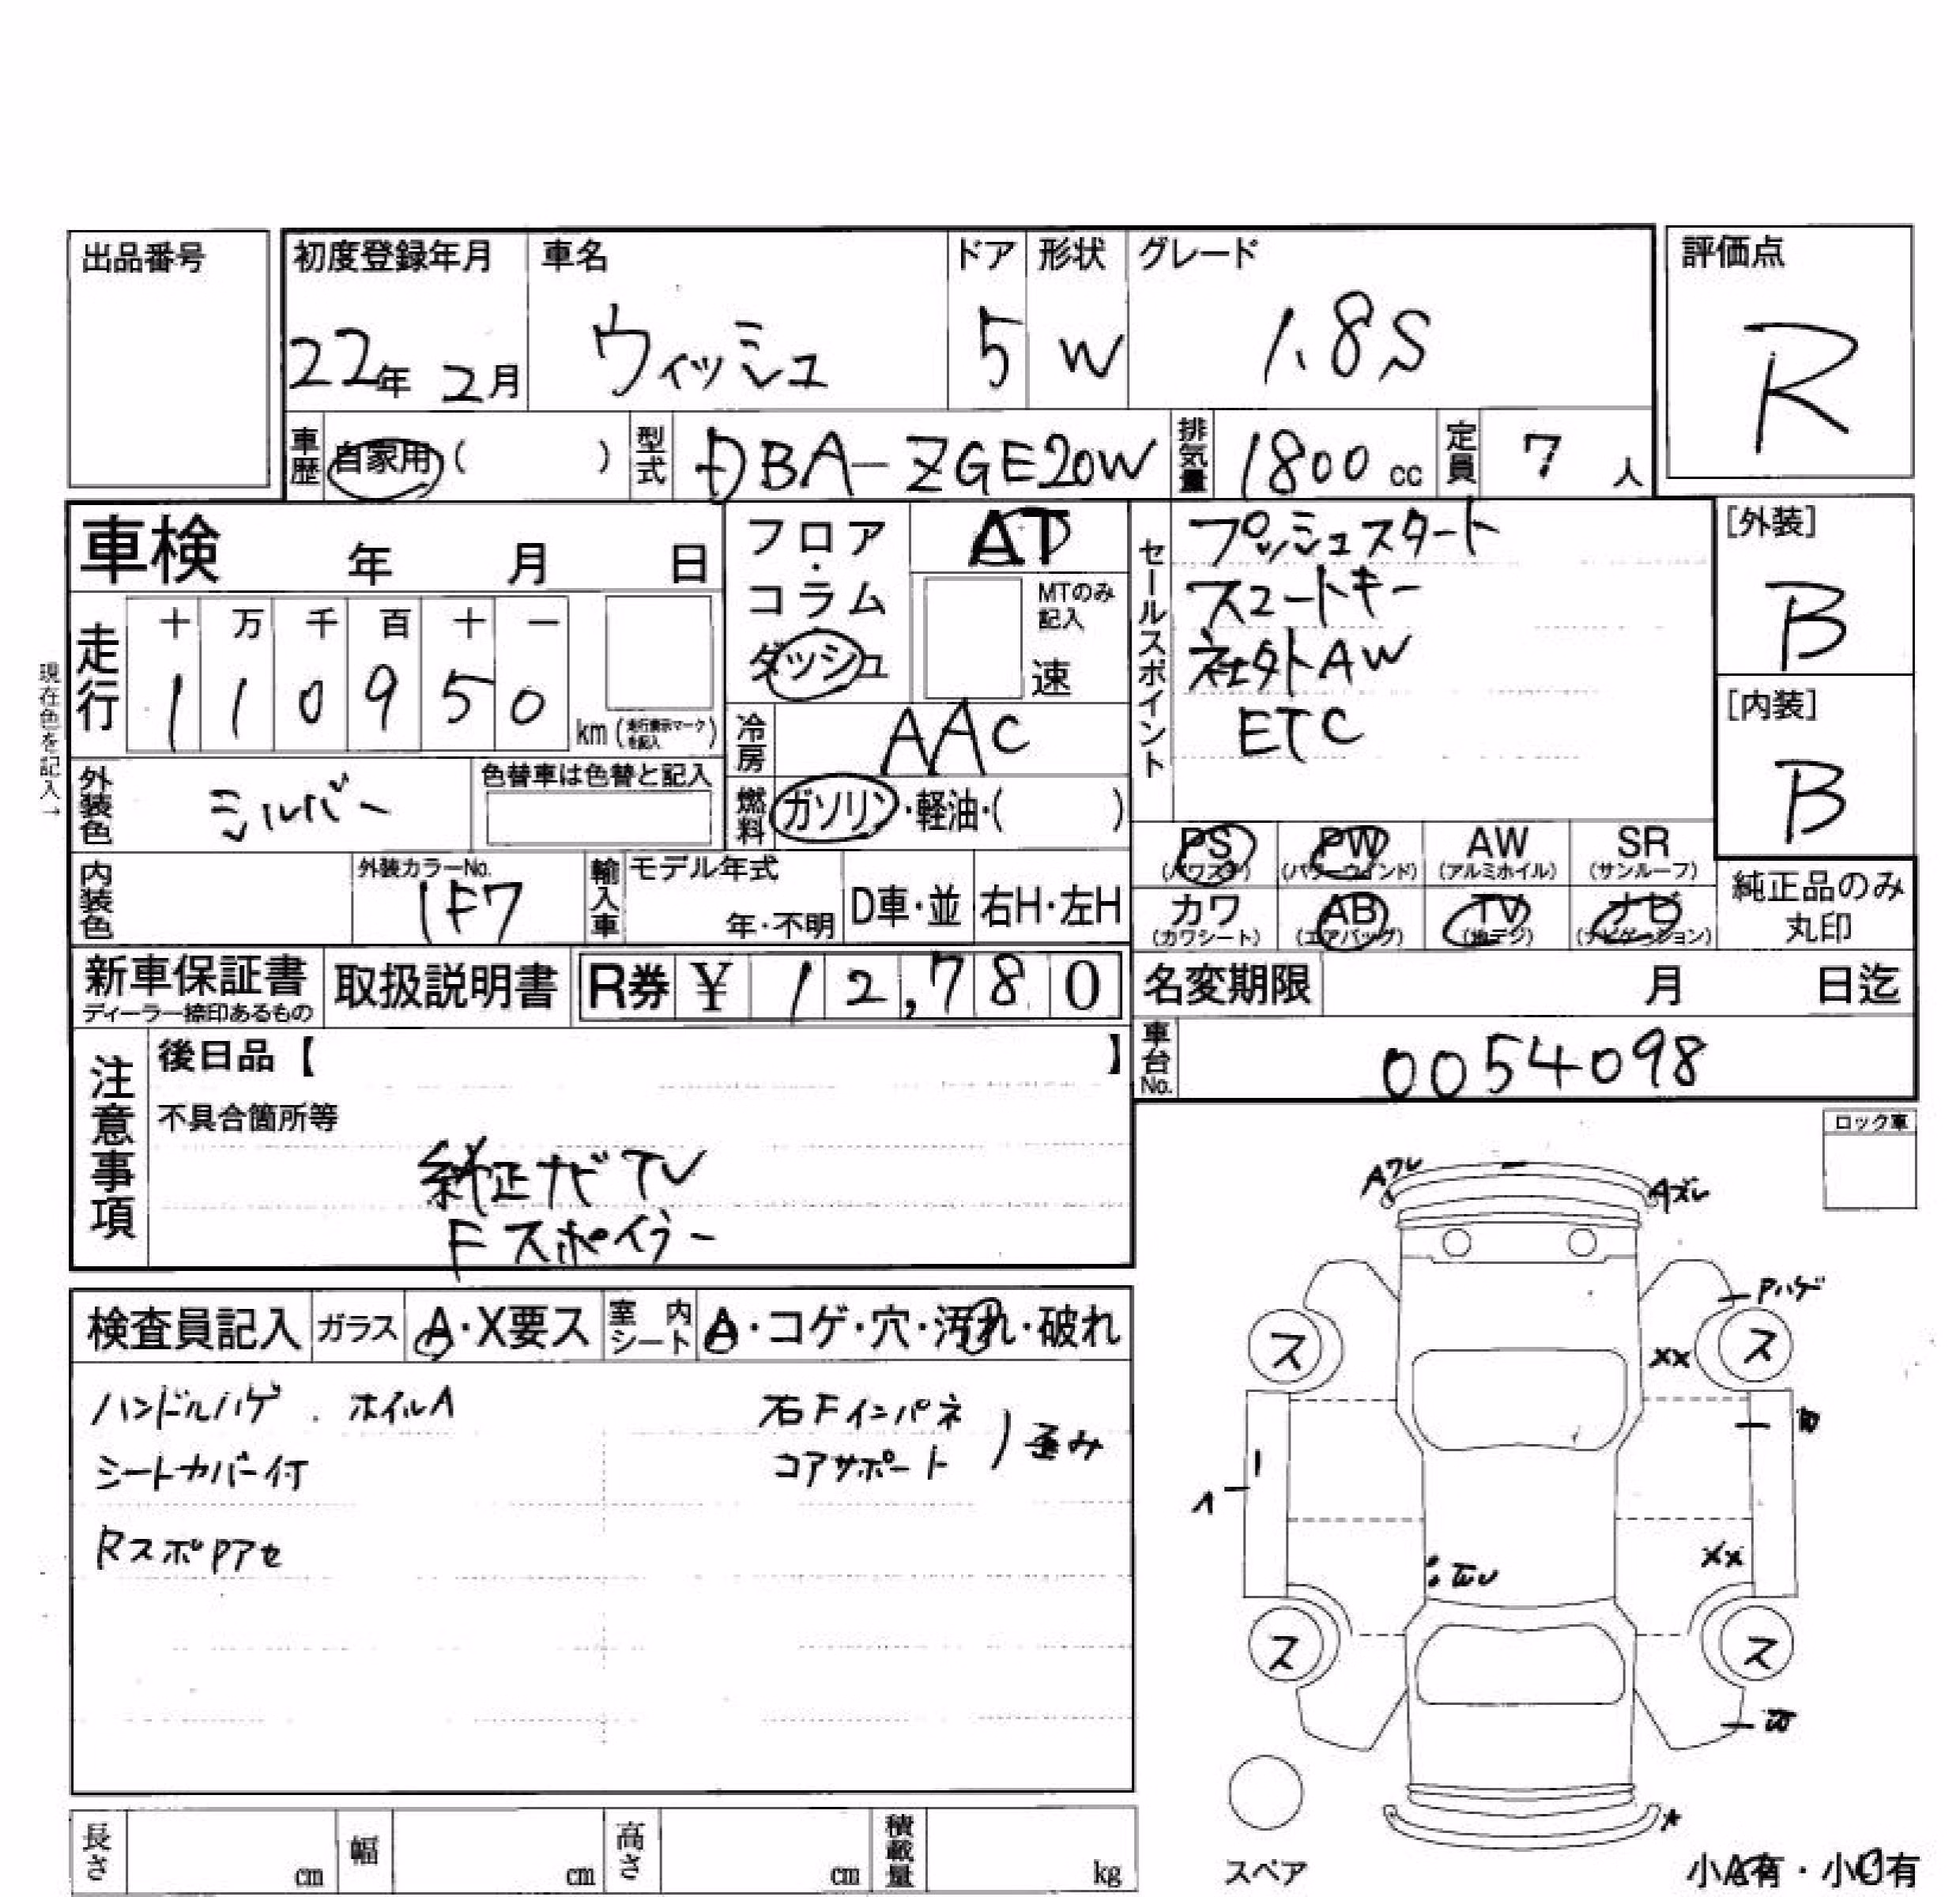 出品番号
初度登録年月 車名 ドア 形状 グレード 評価点
22年 2月 ウィッシュ 5 W 1.8S R
車歴 自家用 ( ) 型式 DBA-ZGE20W 排気量 1800 cc 定員 7 人
車検 年 月 日
フロア・コラム ダッシュ AT
MTのみ記入 速
走行 十 万 千 百 十 一
1 1 0 9 5 0 km (走行表示マークを記入)
現在色を記入→
冷房 AAC
外装色 シルバー 色替車は色替と記入
燃料 ガソリン・軽油・( )
セールスポイント
プッシュスタート
スュートキー
社外AW
ETC
[外装]
B
[内装]
B
PS (パワステ) PW (パワーウインド) AW (アルミホイル) SR (サンルーフ)
カワ (カワシート) AB (エアバッグ) TV (地デジ) ナビ (ナビゲーション)
純正品のみ
丸印
内装色 外装カラーNo. 1F7 輸入車 モデル年式 年・不明 D車・並 右H・左H
新車保証書 ディーラー捺印あるもの 取扱説明書 R券 ¥ 12,780
名変期限 月 日迄
車台No. 0054098
注意事項
後日品【 】
不具合箇所等
純正ナビTV
Fスポイラー
ロック車
検査員記入 ガラス A・X要ス 室内シート A・コゲ・穴・汚れ・破れ
ハンドルハゲ . ホイルA
シートカバー付
RスポPアセ
右Fインパネ
コアサポート ) 歪み
Aワレ
Aズレ
Pハゲ
ス ス
XX
XX
ス ス
A
スペア
小A有・小C有
長さ cm 幅 cm 高さ cm 積載量 kg